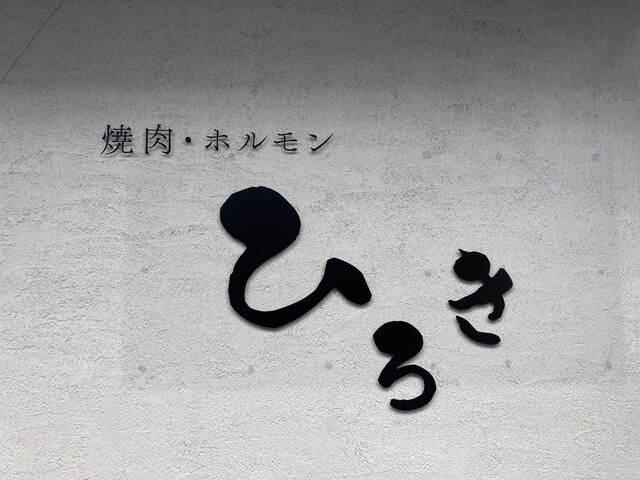 焼肉・ホルモン
ひろき